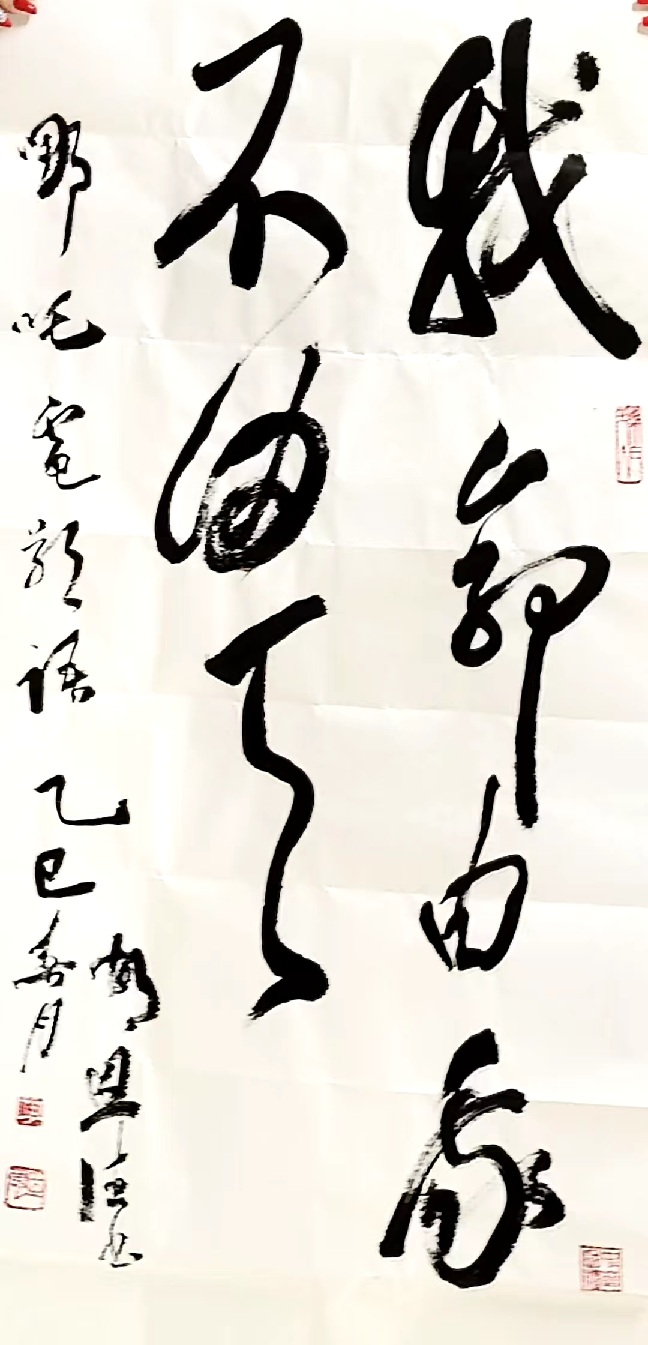 我命由我
不由天
哪吒電影語 乙巳春月
胡恩 书